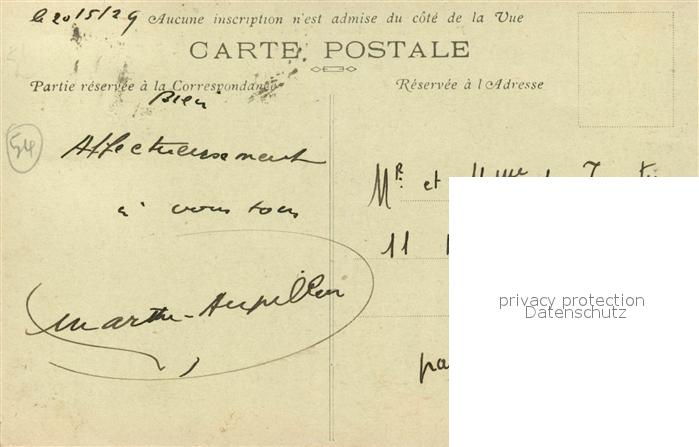 le 20/5/29
Aucune inscription n'est admise du côté de la Vue
CARTE POSTALE
Partie réservée à la Correspondance
Réservée à l'Adresse
Bien
Affectueusement
à vous tous
54
Mr et Mme
11
privacy protection
Datenschutz